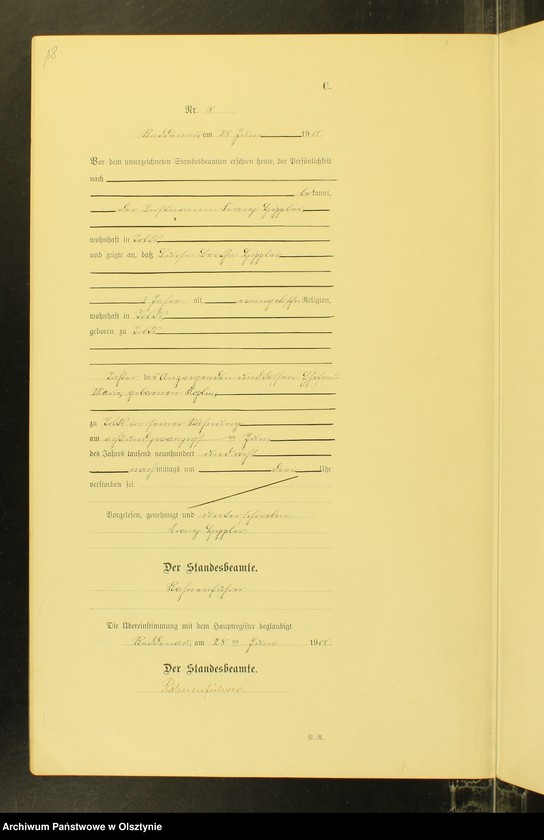 18
C.
Nr. 18
Reddenau am 28 Juni 1908
Vor dem unterzeichneten Standesbeamten erschien heute, der Persönlichkeit
nach
bekannt,
der Instmann Franz Gippler
wohnhaft in Tolks
und zeigte an, daß Luise Bertha Gippler
3 Jahre alt evangelischer Religion,
wohnhaft in Tolks
geboren zu Tolks
Tochter des Anzeigenden und dessen Ehefrau
Marie, geborenen
zu Tolks in seiner Wohnung
am achtundzwanzigsten Juni
des Jahres tausend neunhundert und acht
nachmittags um drei Uhr
verstorben sei.
Vorgelesen, genehmigt und unterschrieben
Franz Gippler
Der Standesbeamte.
Kahnenführer
Die Übereinstimmung mit dem Hauptregister beglaubigt
Reddenau, am 28ten Juni 1908.
Der Standesbeamte.
Kahnenführer
N.-R.
Archiwum Państwowe w Olsztynie